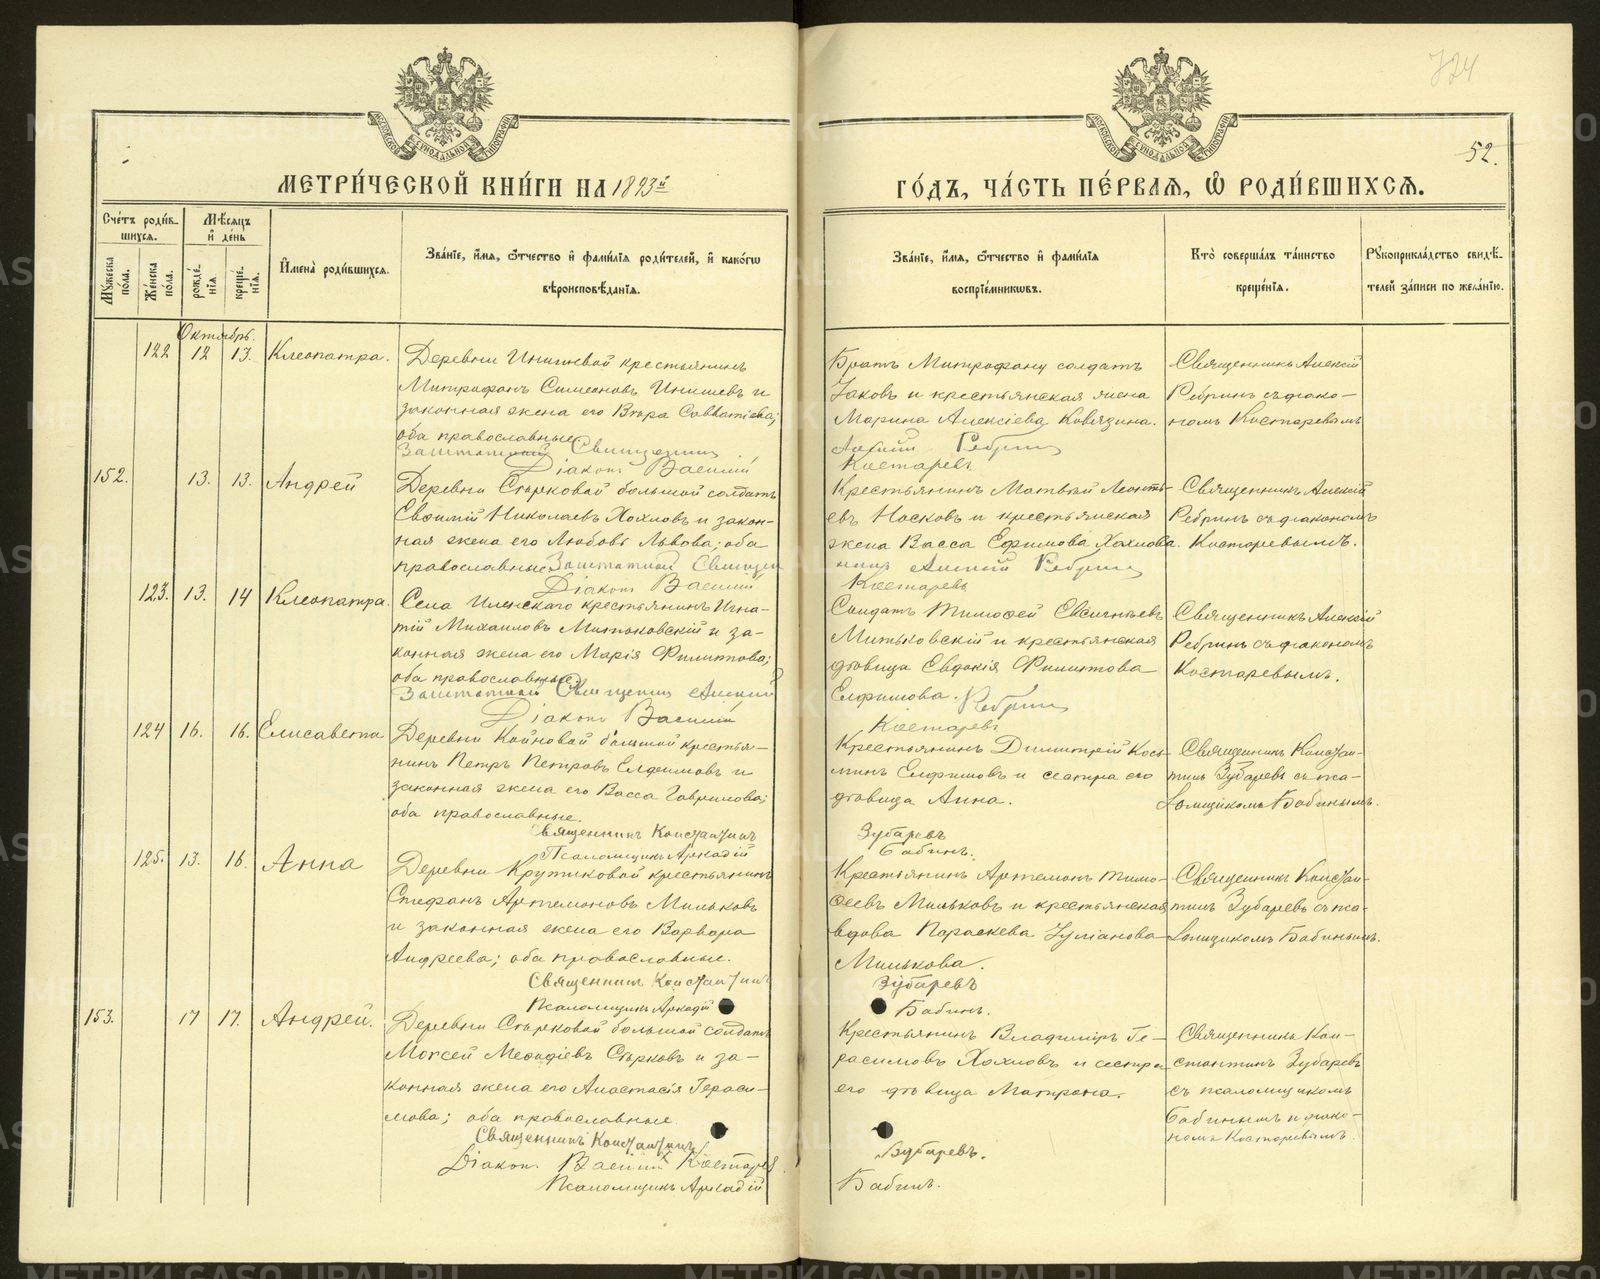 724
52.
МОСКОВСКОЙ СѴНОДАЛЬНОЙ ТИПОГРАФІИ
МОСКОВСКОЙ СѴНОДАЛЬНОЙ ТИПОГРАФІИ
МЕТРИ́ЧЕСКОЙ КНИ́ГИ НА 1893й
ГО́ДЪ, ЧА́СТЬ ПЕ́РВАѦ, Ѡ҆ РОДИ́ВШИХСѦ.
Сче́тъ роди́в-
шихсѧ.
Мꙋ́жеска по́ла.
Же́нска по́ла.
Мѣ́сѧцъ
и҆ де́нь
рожде́-
нїѧ.
креще́-
нїѧ.
И҆мена̀ роди́вшихсѧ.
Зва́нїе, и҆́мѧ, ѻ҆́тчество и҆ фамі́лїѧ роди́телей, и҆ како́гѡ
вѣроисповѣ́данїѧ.
Зва́нїе, и҆́мѧ, ѻ҆́тчество и҆ фамі́лїѧ
воспрїе́мникѡвъ.
Кто̀ соверша́лъ та́инство
креще́нїѧ.
Рꙋкоприкла́дство свидѣ́-
телей за́писи по жела́нїю.
Октябрь.
122 12 13. Клеопатра.
Деревни Инишевой крестьянинъ
Митрофанъ Симеоновъ Инишевъ и
законная жена его Вѣра Савватіева;
оба православные
Заштатный Священник
Діаконъ Василий
Братъ Митрофану солдатъ
Іаковъ и крестьянская жена
Марина Алексіева Ковязина.
Алексій Ребрин
Костаревъ
Священникъ Алексій
Ребринъ съ діако-
номъ Костаревымъ
152. 13. 13. Андрей
Деревни Старковой большой солдатъ
Евфимій Николаевъ Хохловъ и закон-
ная жена его Любовь Львова; оба
православные Заштатной Священ
Діаконъ Василий
Крестьянинъ Матвѣй Леонть-
евъ Носковъ и крестьянская
жена Васса Ефимова Хохлова.
ник Алексій Ребрин
Костаревъ
Священникъ Алексій
Ребринъ съ діакономъ
Костаревымъ.
123. 13. 14 Клеопатра.
Села Иленскаго крестьянинъ Игна-
тій Михаиловъ Митьковскій и за-
конная жена его Марія Филиппова;
оба православные
Заштатный Священник Алексий
Діаконъ Василий
Солдатъ Тимофей Евсигнѣевъ
Митьковскій и крестьянская
дѣвица Евдокія Филиппова
Елфимова. Ребрин
Костаревъ
Священникъ Алексій
Ребринъ съ діакономъ
Костаревымъ.
124 16. 16. Елисавета
Деревни Койновой большой крестья-
нинъ Петръ Петровъ Елфимовъ и
законная жена его Васса Гаврилова;
оба православные.
Священникъ Константинъ
Псаломщикъ Аркадій
Крестьянинъ Димитрій Кось-
минъ Елфимовъ и сестра его
дѣвица Анна.
Зубаревъ
Бабинъ.
Священникъ Констан-
тинъ Зубаревъ съ пса-
ломщикомъ Бабинымъ.
125. 13. 16. Анна
Деревни Крутиковой крестьянинъ
Стефанъ Артемоновъ Мильковъ
и законная жена его Варвара
Андреева; оба православные.
Священникъ Константинъ
Псаломщикъ Аркадій
Крестьянинъ Артемонъ Тимо-
феевъ Мильковъ и крестьянская
вдова Параскева Іуліанова
Милькова.
Зубаревъ
Бабинъ.
Священникъ Констан-
тинъ Зубаревъ съ пса-
ломщикомъ Бабинымъ.
153. 17 17. Андрей.
Деревни Старковой большой солдатъ
Моѵсей Старковъ и за-
конная жена его Анастасія Гераси-
мова; оба православные.
Священникъ Константинъ
Діакон. Василий Костарев
Псаломщикъ Аркадій
Крестьянинъ Владиміръ Ге-
расимовъ Хохловъ и сестра
его дѣвица Матрона.
Зубаревъ.
Бабинъ.
Священникъ Кон-
стантинъ Зубаревъ
съ псаломщикомъ
Бабинымъ и діако-
номъ Костаревымъ.
METRIKI.GASO-URAL.RU